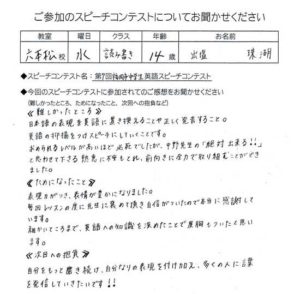 ご参加のスピーチコンテストについてお聞かせください
教室 曜日 クラス 年齢 お名前
六本松校 水 読み書き 14歳 出塩 珠湖
◆スピーチコンテスト名:第7回 英語スピーチコンテスト
◆今回のスピーチコンテストに参加されてのご感想をお聞かせください
(難しかったところ、ためになったこと、次回への抱負など)
≪難しいところ≫
日本語の表現を英語に書き換えることや正しく発音すること。
英語の抑揚をつけスピーチにしていくことです。
求められるレベルが高いほど必死でしたが、中野先生の「絶対出来る!!」
と思わせて下さる熱意に背をもとれ、前向きに全力で取り組むことができ
ました。
≪ためになったこと≫
表現力がつき、表情が豊かになりました。
毎回レッスンの度に先生に褒めて頂き自信がついたので本当に感謝して
います。
細かいところまで、英語への知識を深めたことで度胸もついたと思い
ます。
≪次回への抱負≫
自分をもっと磨き続け、自分なりの表現を付け加え、多くの人に言葉
を発信していきたいです!!